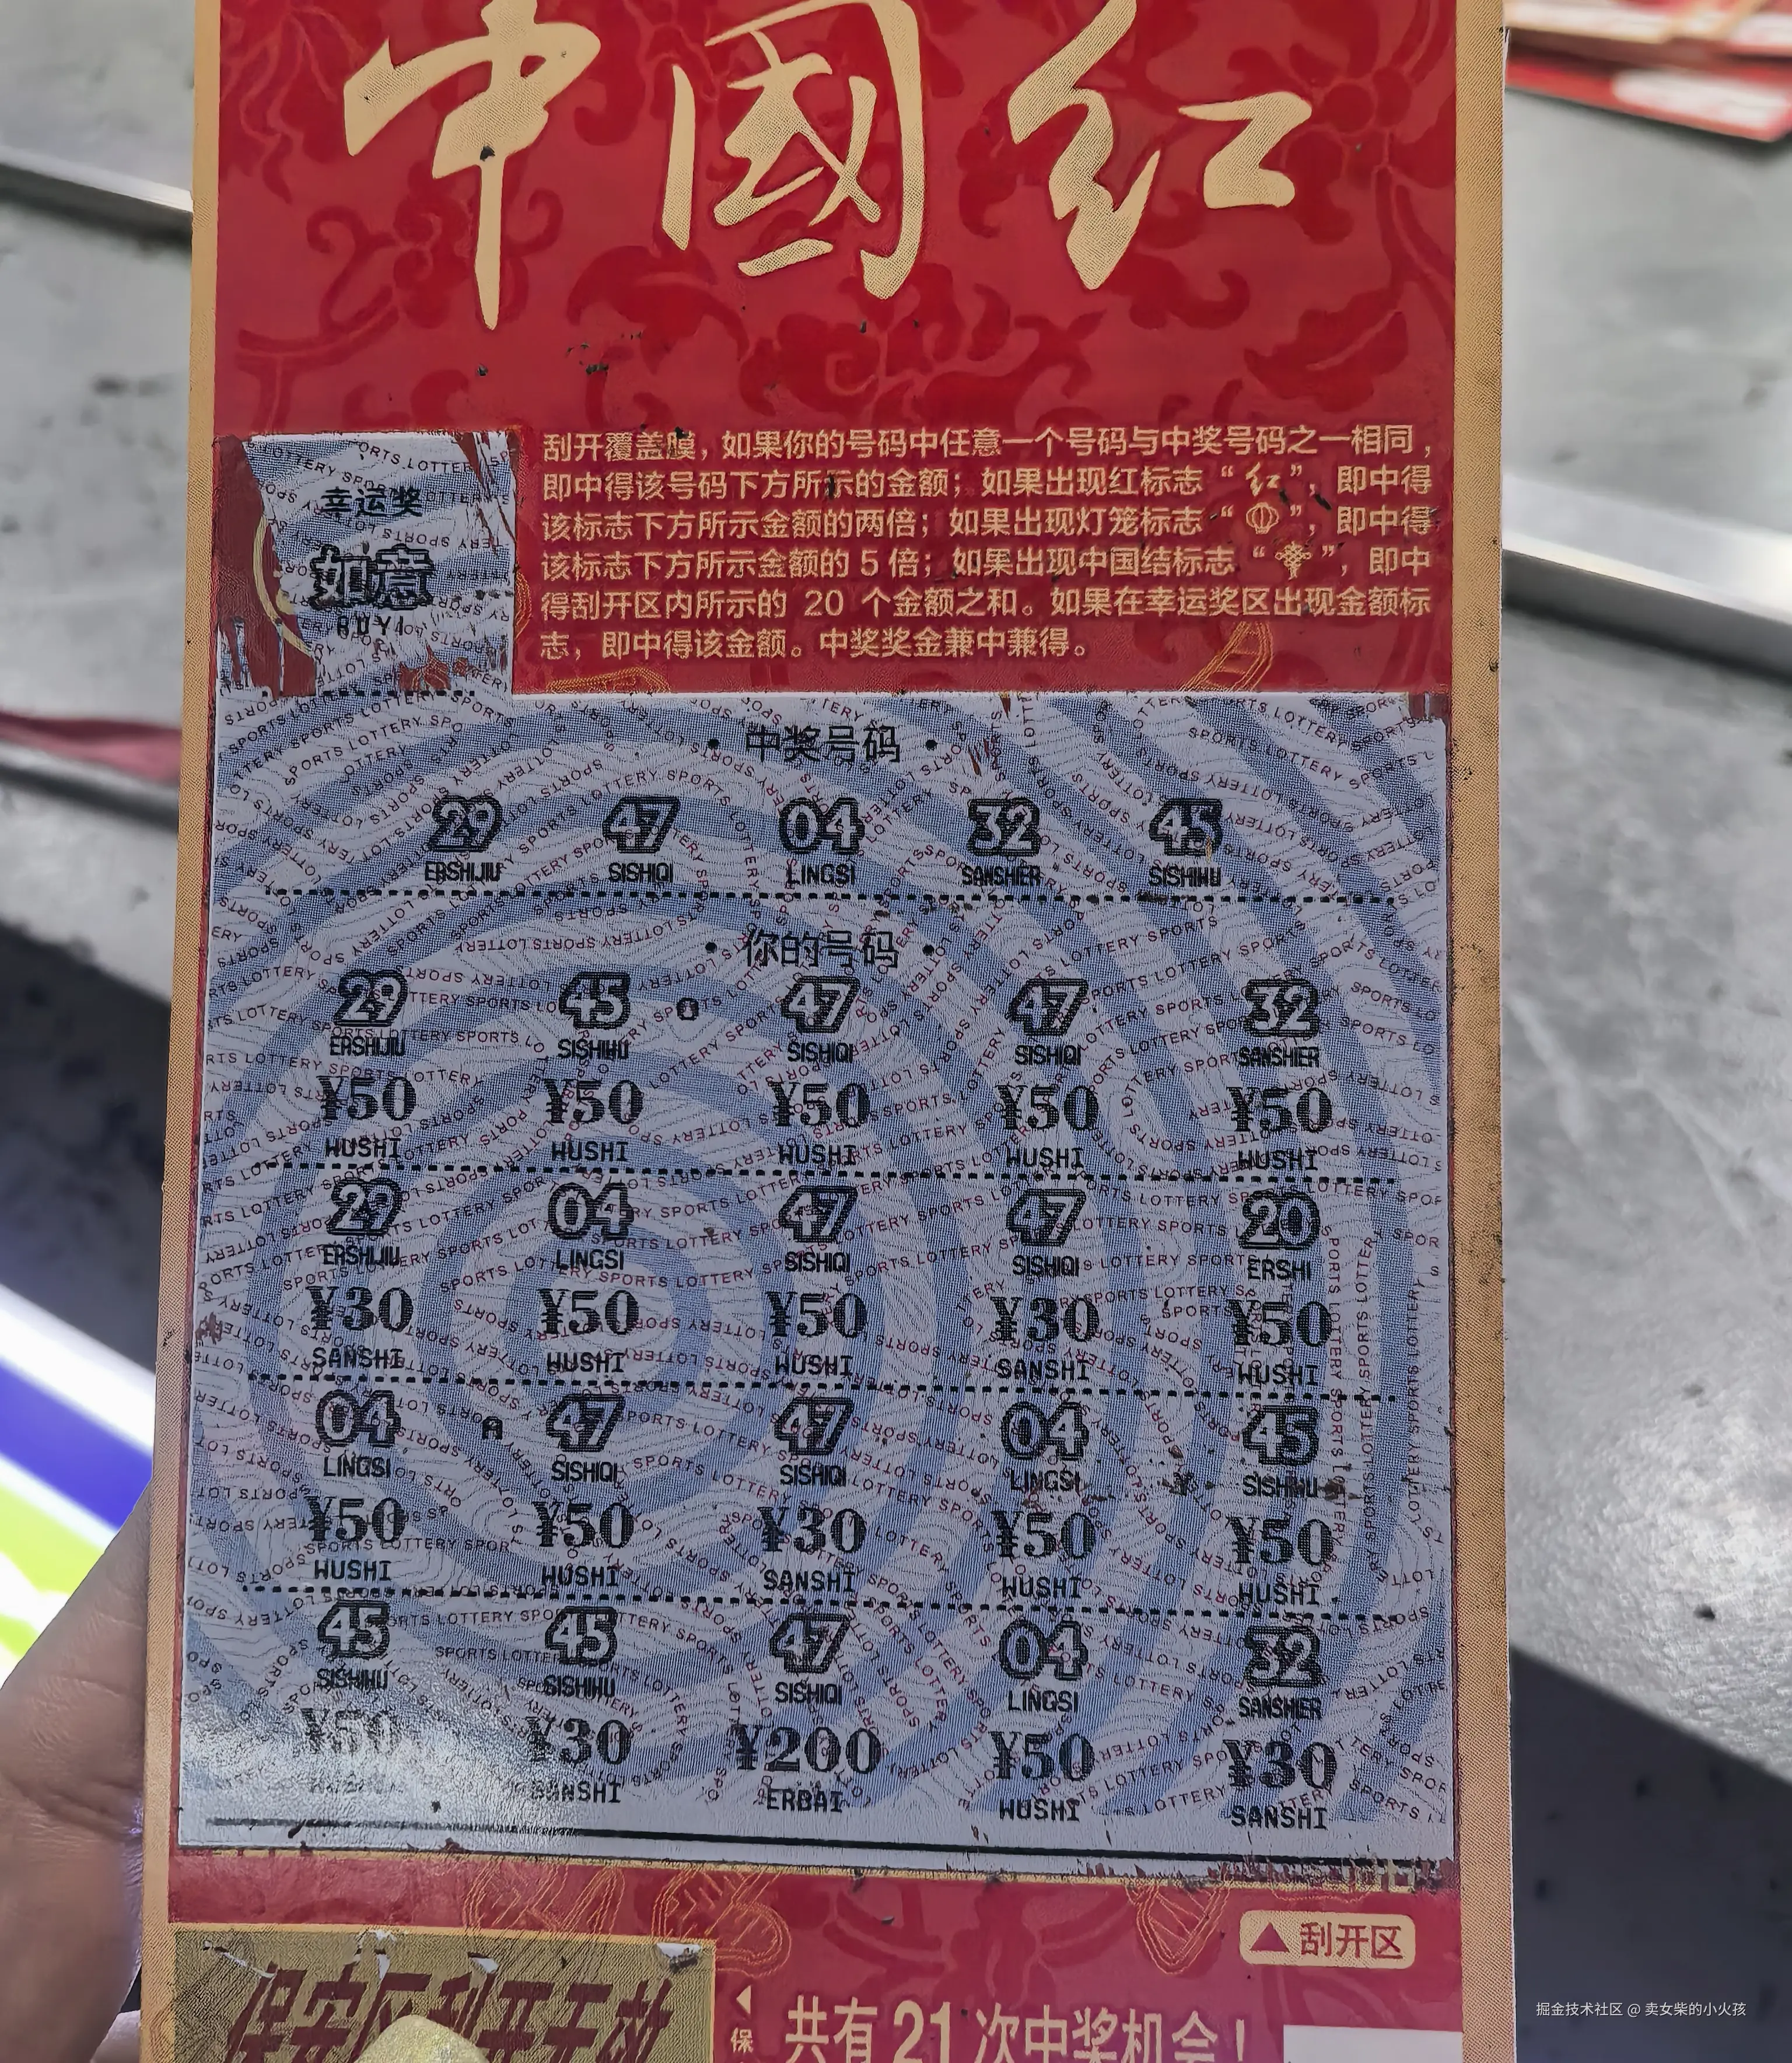 中國红
刮开覆盖膜，如果你的号码中任意一个号码与中奖号码之一相同，
即中得该号码下方所示的金额；如果出现红标志“红”，即中得
该标志下方所示金额的两倍；如果出现灯笼标志“”，即中得
该标志下方所示金额的 5 倍；如果出现中国结标志“”，即中
得刮开区内所示的 20 个金额之和。如果在幸运奖区出现金额标
志，即中得该金额。中奖奖金兼中兼得。
幸运奖
如意
RUYI
·中奖号码·
29 47 04 32 45
ERSHIJIU SISHIQI LINGSI SANSHIER SISHIWU
·你的号码·
29 45 47 47 32
ERSHIJIU SISHIWU SISHIQI SISHIQI SANSHIER
¥50 ¥50 ¥50 ¥50 ¥50
WUSHI WUSHI WUSHI WUSHI WUSHI
29 04 47 47 20
ERSHIJIU LINGSI SISHIQI SISHIQI ERSHI
¥30 ¥50 ¥50 ¥30 ¥50
SANSHI WUSHI WUSHI SANSHI WUSHI
04 47 47 04 45
LINGSI SISHIQI SISHIQI LINGSI SISHIWU
¥50 ¥50 ¥30 ¥50 ¥50
WUSHI WUSHI SANSHI WUSHI WUSHI
45 45 47 04 32
SISHIWU SISHIWU SISHIQI LINGSI SANSHIER
¥50 ¥30 ¥200 ¥50 ¥30
SANSHI ERBAI WUSHI SANSHI
▲刮开区
保安区刮开无效
◀保
共有21次中奖机会！
掘金技术社区 @ 卖女柴的小火孩